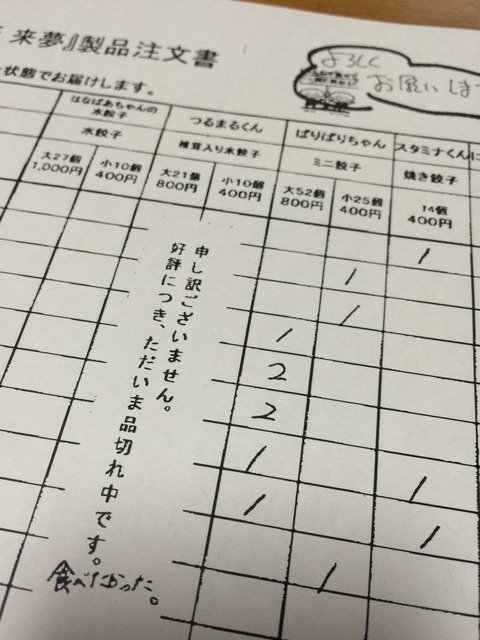 来夢』製品注文書
よろしく
お願いしま
状態でお届けします。
はなばあちゃんの
水餃子
つるまるくん
ぱりぱりちゃん
スタミナくんに
水餃子
椎茸入り水餃子
ミニ餃子
焼き餃子
大27個
1,000円
小10個
400円
大21個
800円
小10個
400円
大52個
800円
小25個
400円
14個
400円
申し訳ございません。
好評につき、ただいま品切れ中です。
食べたかった。
1
1
1
1
2
2
1
1
1
1
1